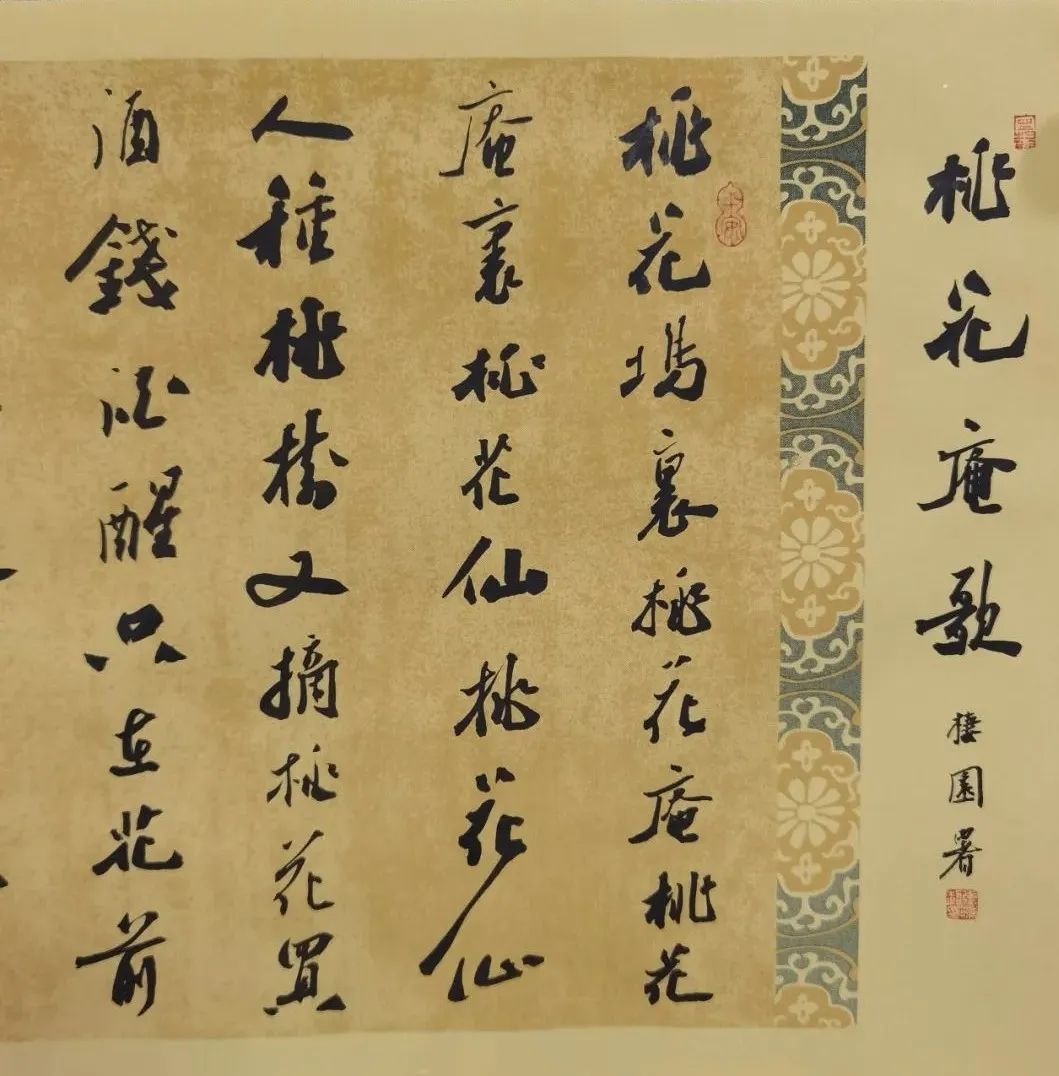 桃花庵歌
棲園署
桃花塢裏桃花庵桃花
庵裏桃花仙桃花仙
人種桃樹又摘桃花買
酒錢酒醒只在花前